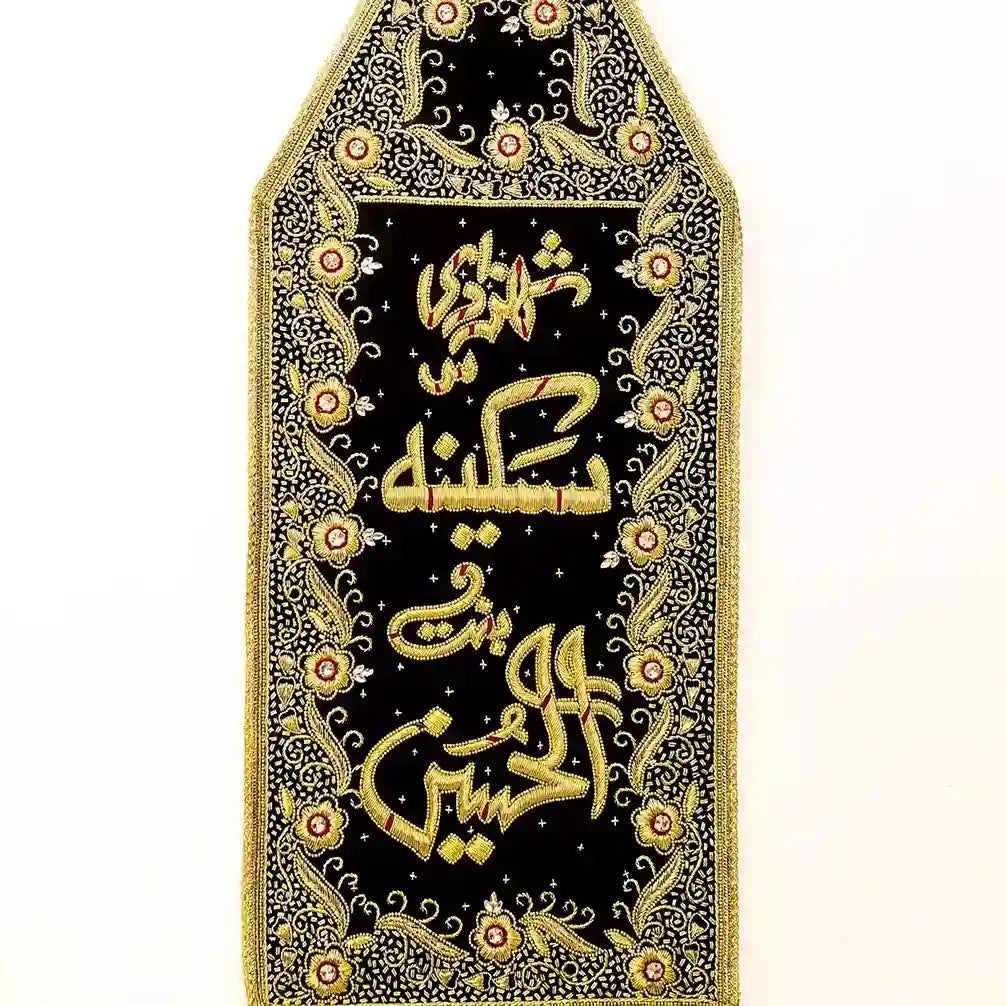 شہزادی
سکینہؑ
بنت
الحسینؑ